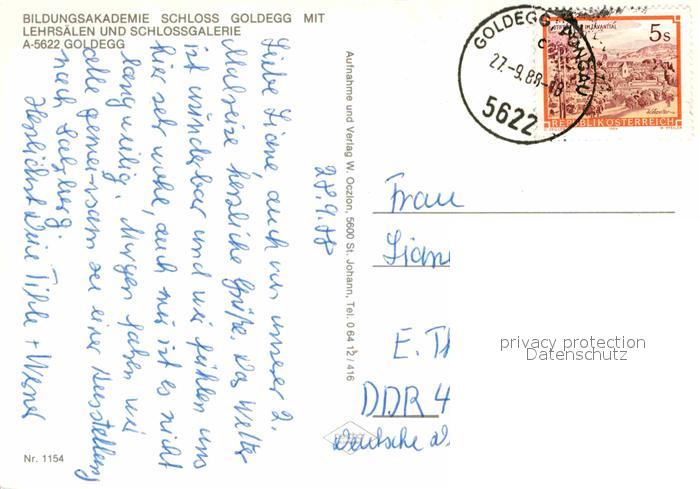 BILDUNGSAKADEMIE SCHLOSS GOLDEGG MIT
LEHRSÄLEN UND SCHLOSSGALERIE
A-5622 GOLDEGG
28.9.88
Liebe Liane, auch von unserer 2.
Malreise herzliche Grüße. Das Wetter
ist wunderbar und wir fühlen uns
hier sehr wohl, auch mir ist es nicht
langweilig. Morgen fahren wir
alle gemeinsam zu einer Ausstellung
nach Salzburg.
Herzlichst Deine Tihle + Werner
Nr. 1154
Aufnahme und Verlag W. Oczlon, 5600 St. Johann, Tel. 0 64 12 / 416
GOLDEGG, PONGAU
c
27.-9.88-18
5622
5s
REPUBLIK ÖSTERREICH
Frau
Lian
E. Th
DDR 4
Deutsche
privacy protection
Datenschutz